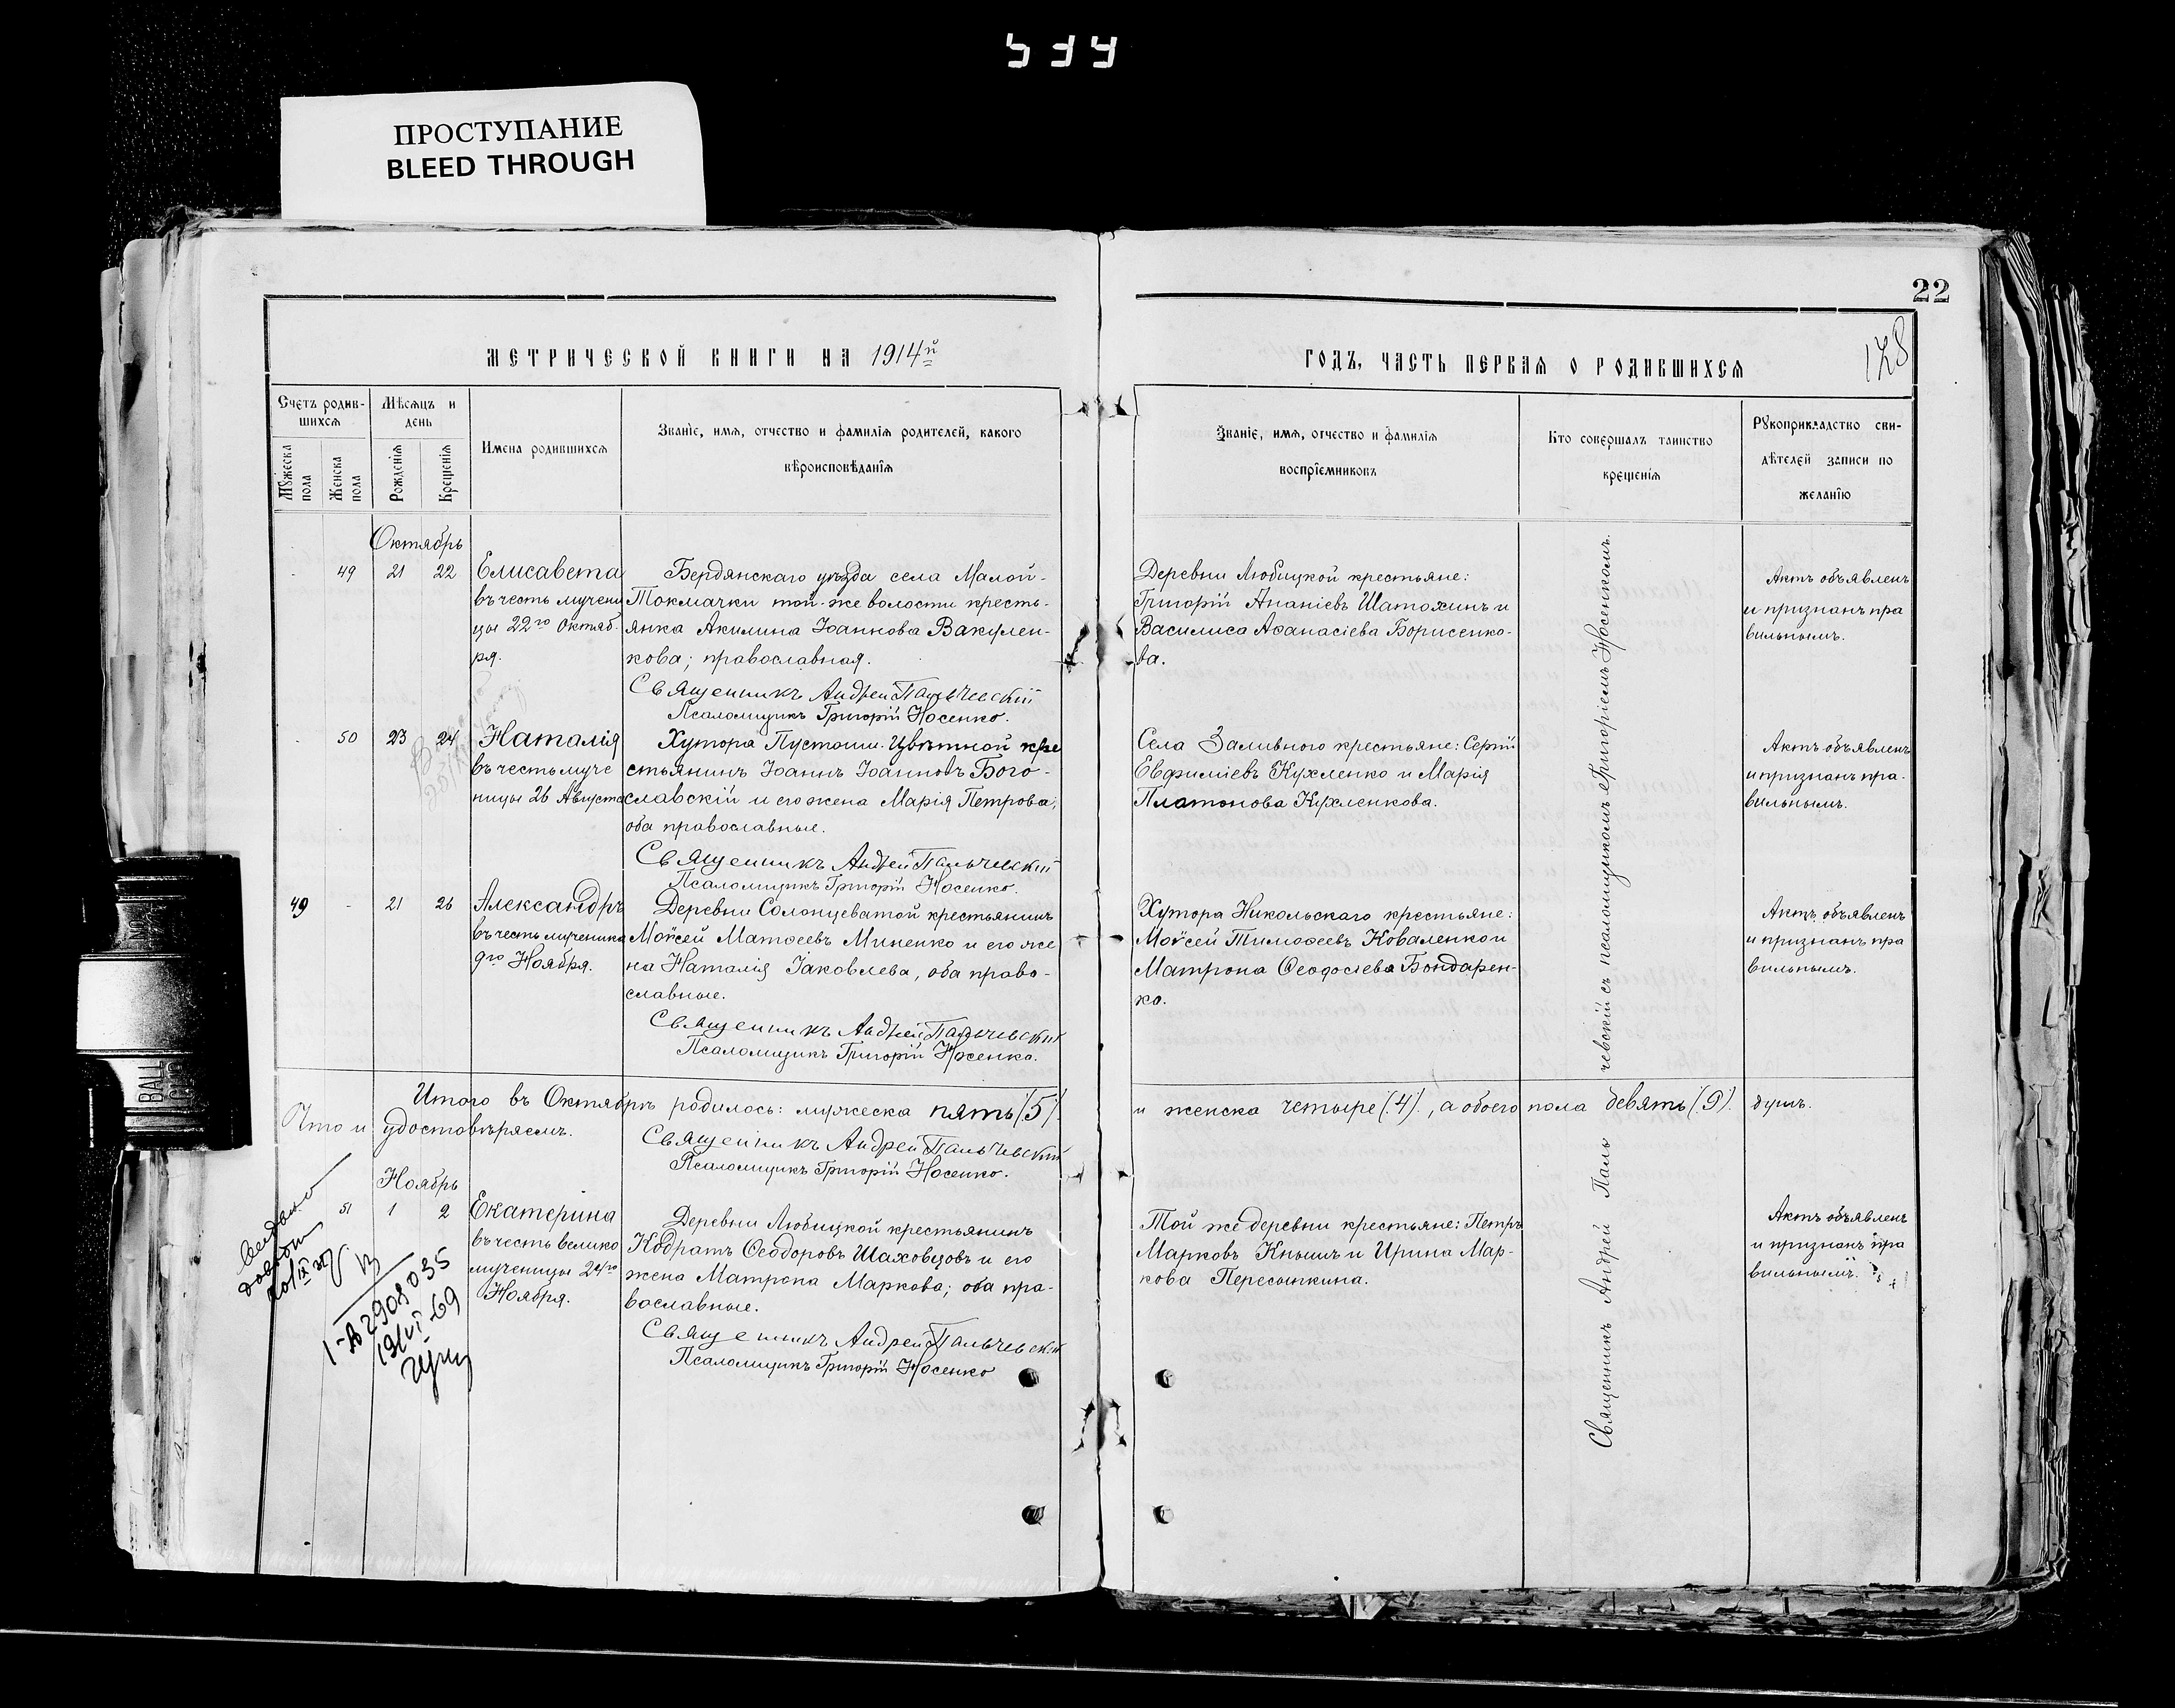 ПРОСТУПАНИЕ
BLEED THROUGH
22
128
МЕТРИЧЕСКОЙ КНИГИ НА 1914й
ГОДЪ, ЧАСТЬ ПЕРВАЯ О РОДИВШИХСЯ
Счетъ родив-
шихся
Мужеска пола
Женска пола
Мѣсяцъ и
день
Рожденія
Крещенія
Имена родившихся
Званіе, имя, отчество и фамилія родителей, какого
вѣроисповѣданія
Званіе, имя, отчество и фамилія
воспріемниковъ
Кто совершалъ таинство
крещенія
Рукоприкладство сви-
дѣтелей записи по
желанію
Октябрь
- 49 21 22
Елисавета
въ честь мучени
цы 22го Октяб-
ря.
Бердянскаго уѣзда села Малой-
Токмачки той-же волости кресть-
янка Акилина Іоаннова Вакулен-
кова; православная.
Священникъ Андрей Пальчевскій
Псаломщикъ Григорій Носенко.
Деревни Любицкой крестьяне:
Григорій Ананіевъ Шатохинъ и
Василиса Аѳанасіева Борисенко-
ва.
Актъ объявленъ
и признанъ пра
вильнымъ.
- 50 23 24
Наталія
въ честь муче
ницы 26 Августа
Хутора Пустоши-Цвѣтной кре
стьянинъ Іоаннъ Іоанновъ Бого-
славскій и его жена Марія Петрова;
оба православные.
Священникъ Андрей Пальчевскій
Псаломщикъ Григорій Носенко.
Села Заливного крестьяне: Сергій
Евфиміевъ Кухленко и Марія
Платонова Кухленкова.
Актъ объявленъ
и признанъ пра-
вильнымъ.
49 - 21 26
Александръ
въ честь мученика
9го Ноября.
Деревни Солонцеватой крестьянинъ
Моисей Матѳеевъ Миненко и его же
на Наталія Іаковлева, оба право-
славные.
Священникъ Андрей Пальчевскій
Псаломщикъ Григорій Носенко.
Хутора Никольскаго крестьяне:
Моисей Тимоѳеевъ Коваленко и
Матрона Ѳеодосіева Бондарен-
ко.
Актъ объявленъ
и признанъ пра
вильнымъ.
Итого въ Октябрѣ родилось: мужеска пять (5) и женска четыре (4), а обоего пола девять (9) душъ.
Что и удостовѣряемъ.
Священникъ Андрей Пальчевскій
Псаломщикъ Григорій Носенко.
Ноябрь
51 1 2
Екатерина
въ честь велико
мученицы 24го
Ноября.
Деревни Любицкой крестьянинъ
Кодратъ Ѳеодоровъ Шаховцовъ и его
жена Матрона Маркова; оба пра-
вославные.
Священникъ Андрей Пальчевскій
Псаломщикъ Григорій Носенко
Той же деревни крестьяне: Петръ
Марковъ Кнышъ и Ирина Мар-
кова Пересыпкина.
Актъ объявленъ
и признанъ пра
вильнымъ.
Священникъ Андрей Пальчевскій съ псаломщикомъ Григоріемъ Носенкомъ.